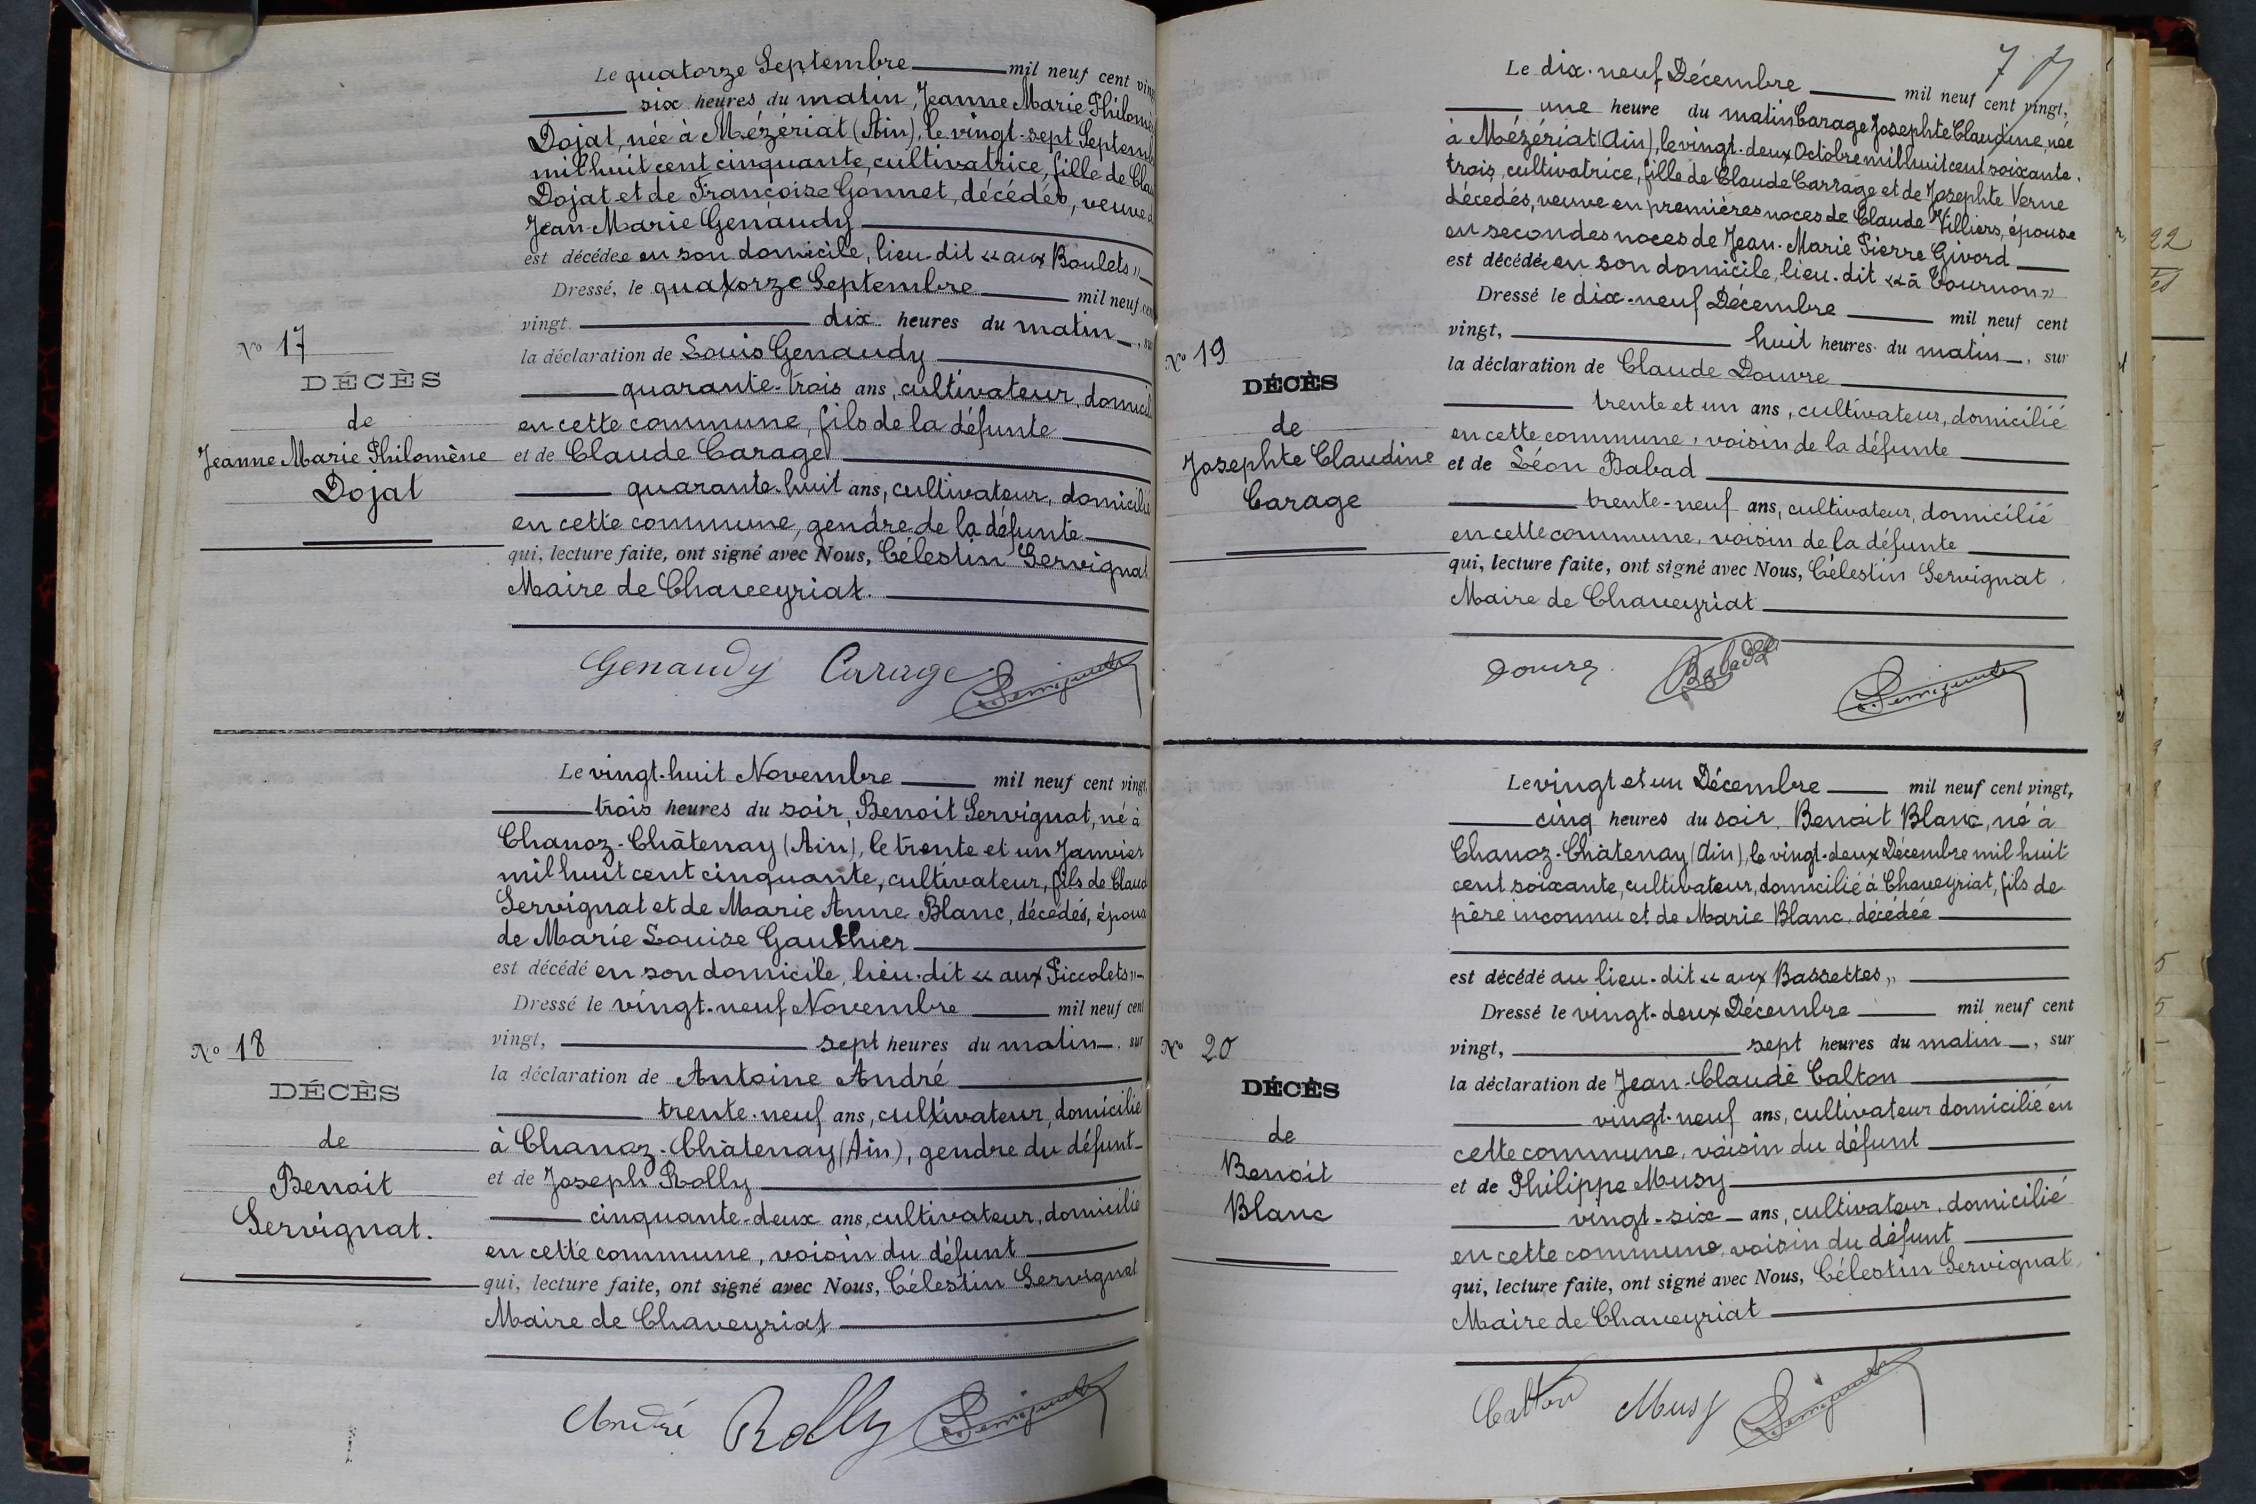 Le quatorze Septembre mil neuf cent vingt
six heures du matin, Jeanne Marie Philomè
Dojat, née à Mézériat (Ain), le vingt-sept Septemb
mil huit cent cinquante, cultivatrice, fille de Clau
Dojat et de Françoise Gonnet, décédés, veuve d
Jean-Marie Genaudy
est décédée en son domicile, lieu-dit « aux Boulets »
Dressé, le quatorze Septembre mil neuf cen
vingt dix heures du matin, su
la déclaration de Louis Genaudy
quarante-trois ans, cultivateur, domicil
en cette commune, fils de la défunte
et de Claude Carage
quarante-huit ans, cultivateur, domicilié
en cette commune, gendre de la défunte
qui, lecture faite, ont signé avec Nous, Célestin Servignat
Maire de Chaveyriat.
No 17
DÉCÈS
de
Jeanne Marie Philomène
Dojat
Genaudy Carage Servignat
Le vingt-huit Novembre mil neuf cent vingt,
trois heures du soir, Benoit Servignat, né à
Chanoz-Châtenay (Ain), le trente et un Janvier
mil huit cent cinquante, cultivateur, fils de Claud
Servignat et de Marie Anne Blanc, décédés, épous
de Marie Louise Gauthier
est décédé en son domicile, lieu-dit « aux Piccolets »
Dressé le vingt-neuf Novembre mil neuf cent
vingt, sept heures du matin, sur
la déclaration de Antoine André
trente-neuf ans, cultivateur, domicilié
à Chanoz-Châtenay (Ain), gendre du défunt
et de Joseph Rolly
cinquante-deux ans, cultivateur, domicilié
en cette commune, voisin du défunt
qui, lecture faite, ont signé avec Nous, Célestin Servignat
Maire de Chaveyriat
No 18
DÉCÈS
de
Benoit
Servignat.
André Rolly Servignat
7
Le dix-neuf Décembre mil neuf cent vingt,
une heure du matin Carage Josephte Claudine, née
à Mézériat (Ain), le vingt-deux Octobre mil huit cent soixante-
trois, cultivatrice, fille de Claude Carrage et de Josephte Verne
décédés, veuve en premières noces de Claude Villiers, épouse
en secondes noces de Jean-Marie Pierre Givord
est décédée en son domicile, lieu-dit « à Tournon »
Dressé le dix-neuf Décembre mil neuf cent
vingt, huit heures du matin, sur
la déclaration de Claude Douvre
trente et un ans, cultivateur, domicilié
en cette commune, voisin de la défunte
et de Léon Babad
trente-neuf ans, cultivateur, domicilié
en cette commune, voisin de la défunte
qui, lecture faite, ont signé avec Nous, Célestin Servignat,
Maire de Chaveyriat
No 19
DÉCÈS
de
Josephte Claudine
Carage
Douvre Babad Servignat
Le vingt et un Décembre mil neuf cent vingt,
cinq heures du soir, Benoit Blanc, né à
Chanoz-Châtenay (Ain), le vingt-deux Décembre mil huit
cent soixante, cultivateur, domicilié à Chaveyriat, fils de
père inconnu et de Marie Blanc, décédée
est décédé au lieu-dit « aux Bassettes »
Dressé le vingt-deux Décembre mil neuf cent
vingt, sept heures du matin, sur
la déclaration de Jean-Claude Calton
vingt-neuf ans, cultivateur domicilié en
cette commune, voisin du défunt
et de Philippe Musy
vingt-six ans, cultivateur, domicilié
en cette commune, voisin du défunt
qui, lecture faite, ont signé avec Nous, Célestin Servignat,
Maire de Chaveyriat
No 20
DÉCÈS
de
Benoit
Blanc
Calton Musy Servignat
22